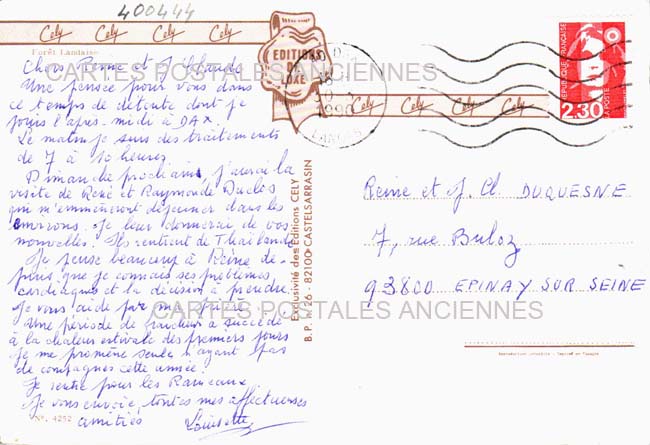 400444
Cely Cely Cely Cely
Forêt Landaise
EDITIONS
DE
LUXE
Cely Cely Cely Cely
DAX
1990
LANDES
REPUBLIQUE FRANÇAISE
LA POSTE
2,30
CARTES POSTALES ANCIENNES
Chers Reine et J. Claude
Une pensée pour vous dans
ce temps de détente dont je
jouis l'après-midi à DAX.
Le matin je suis des traitements
de 7 à 10 heures.
Dimanche prochain, j'aurai la
visite de René et Raymonde Duclos
qui m'emmèneront déjeuner dans les
environs. Je leur donnerai de vos
nouvelles. Ils rentrent de Thaïlande
Je pense beaucoup à Reine de-
puis que je connais ses problèmes
cardiaques et la décision à prendre.
Je vous aide par ma
Une période de fraîcheur a succédé
à la chaleur estivale des premiers jours
Je me promène seule n'ayant pas
de compagnes cette année.
Je rentre pour les Rameaux
Je vous envoie, toutes mes affectueuses
amitiés Louisette
N° 4252
Exclusivité des Editions CELY
B.P. N° 26 - 82100 CASTELSARRASIN
Reine et J. Cl. DUQUESNE
7, rue Buloz
93800 EPINAY SUR SEINE
CARTES POSTALES ANCIENNES